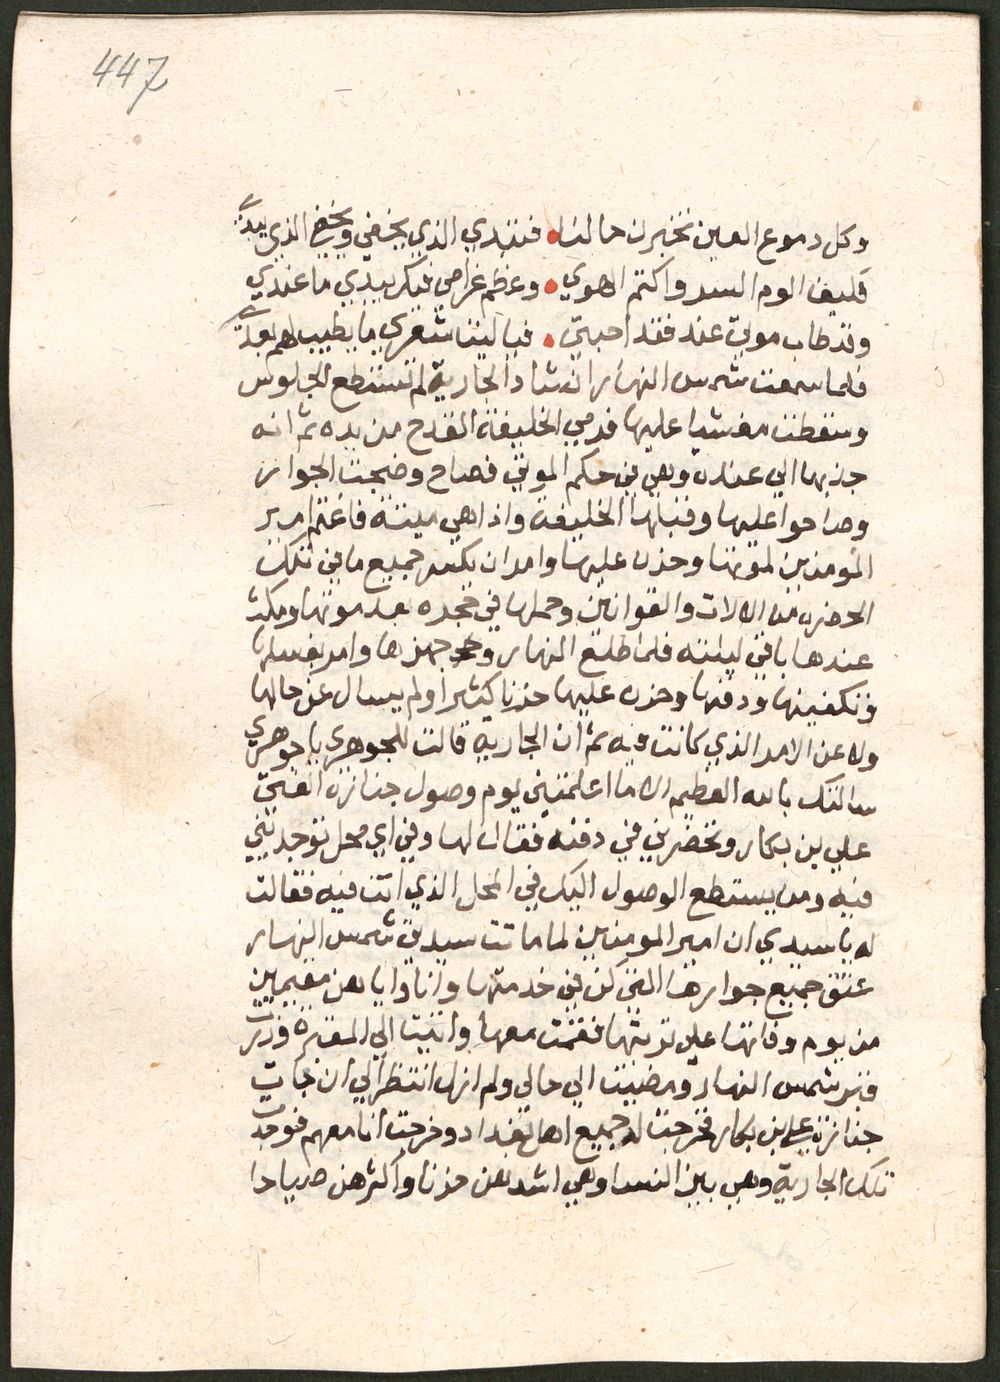 447
وكل دموع العين تخبرن حالنا • فتبدي الذي يخفي ويخفي الذي يبدي
فكيف اروم السر واكتم الهوي • وعظم غرامي فيك يبدي ما عندي
وقد طاب موتي عند فقد احبتي • فيا ليت شعري ما يطيب لهم بعدي
فلما سمعت شمس النهار انشاد الجارية لم تستطع الجلوس
وسقطت مغشيا عليها فرمي الخليفة القدح من يده ثم انه
جذبها الي عنده وهي في حكم الموتي فصاح وضجت الجوار
وصاحوا عليها وقلبها الخليفة واذا هي ميتة فاغتم امير
المومنين لموتها وحزن عليها وامر ان يكسر جميع ما في تلك
الحضره من الالات والقوانين وحملها في حجره بعد موتها ومكث
عندها باقي ليلته فلما طلع النهار جهزها وامر بغسلها
وتكفينها ودفنها وحزن عليها حزنا كثيرا ولم يسال عن حالها
ولا عن الامر الذي كانت فيه ثم ان الجارية قالت للجوهري يا جوهري
سالتك بالله العظيم الا ما اعلمتني يوم وصول جنازة الفتي
علي بن بكار وتحضرني في دفنه فقال لها وفي اي محل توجديني
فيه ومن يستطع الوصول اليك في المحل الذي انت فيه فقالت
له يا سيدي ان امير المومنين لما ماتت سيدتي شمس النهار
عتق جميع جوارها التي كن في خدمتها وانا واياهن مقيمين
من يوم وفاتها علي تربتها فقمت معها واتيت الي المقبرة وزرت
قبر شمس النهار ومضيت الي حالي ولم ازل انتظر الي ان جات
جنازة علي بن بكار فخرجت له جميع اهل بغداد وخرجت انا معهم فوجدت
تلك الجارية وهي بين النسا وهي اشدهن حزنا واكثرهن صياحا